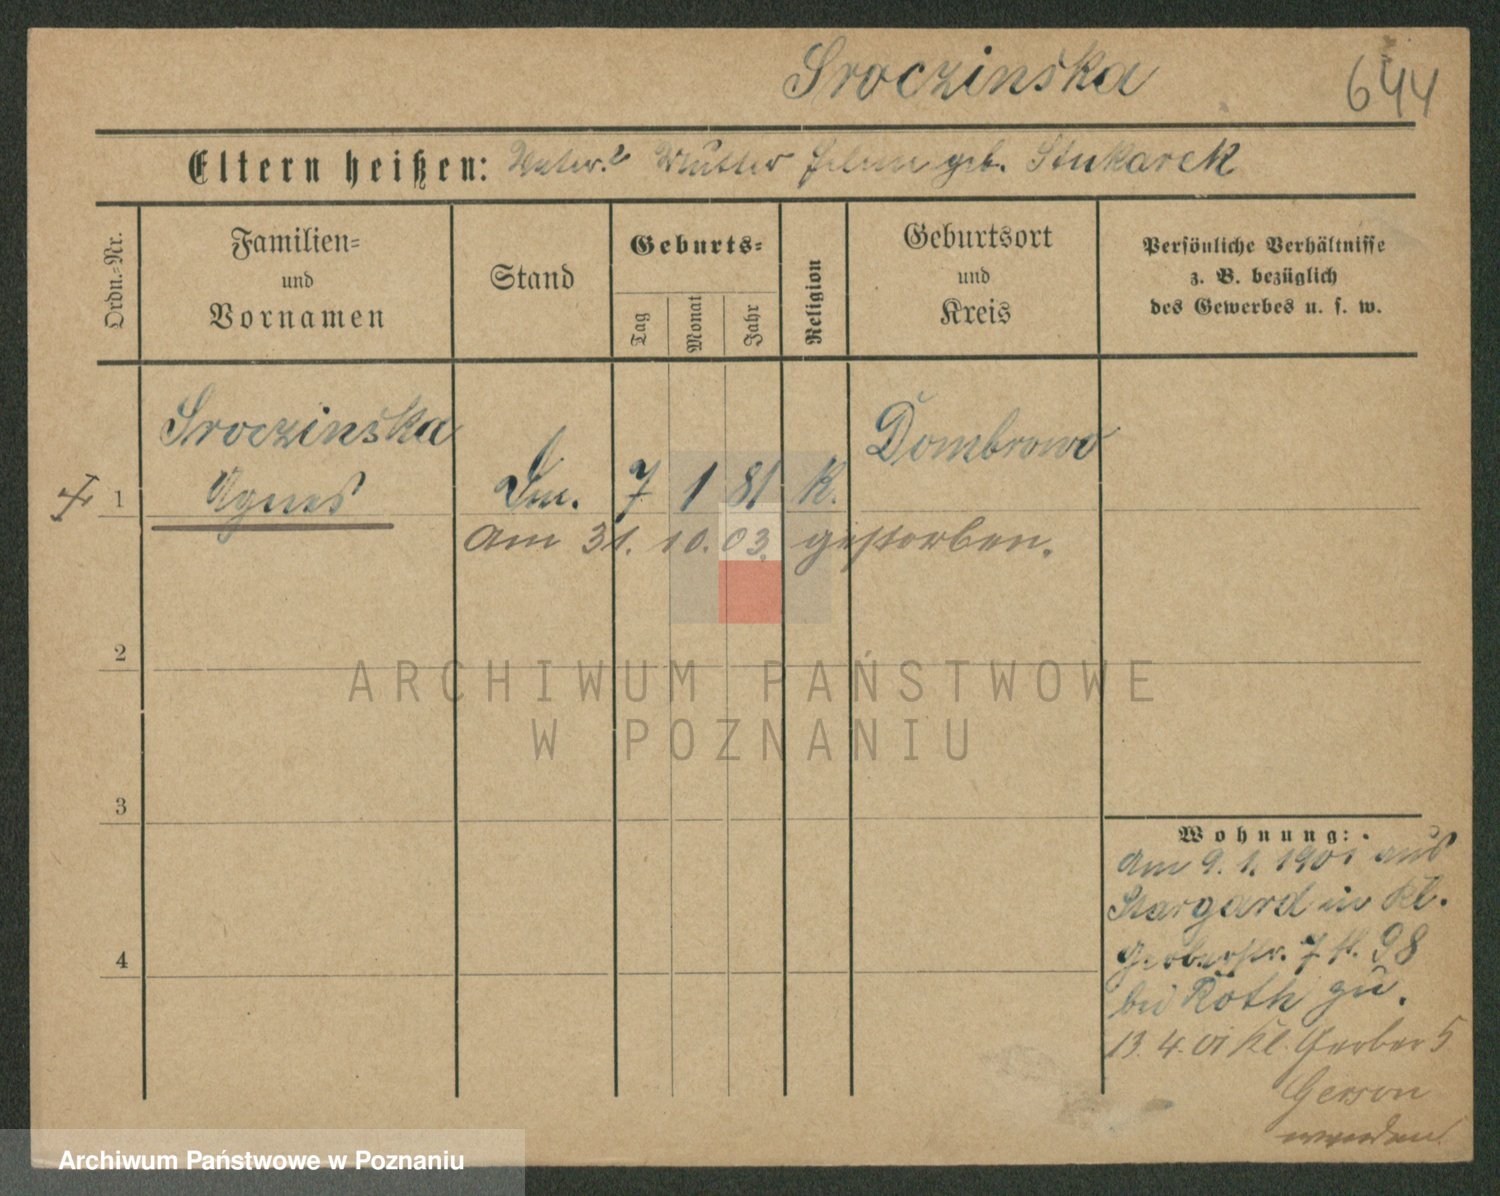 Sroczinska 644
Eltern heißen: Vater ? Mutter geb. Stukarek
Ordn.-Nr.
Familien-
und
Vornamen
Stand
Geburts-
Tag
Monat
Jahr
Religion
Geburtsort
und
Kreis
Persönliche Verhältnisse
z. B. bezüglich
des Gewerbes u. s. w.
Sroczinska Dombrowo
1 Agnes 7 1 81 K.
am 31. 10. 03. gestorben.
2
ARCHIWUM PAŃSTWOWE
W POZNANIU
3
Wohnung:
am 9. 1. 1901 aus
Stargard in Kl.
Gerberstr. 7 II. 98
bei Roth zu.
13. 4. 01 Kl. Gerber 5
Gerson
4
Archiwum Państwowe w Poznaniu